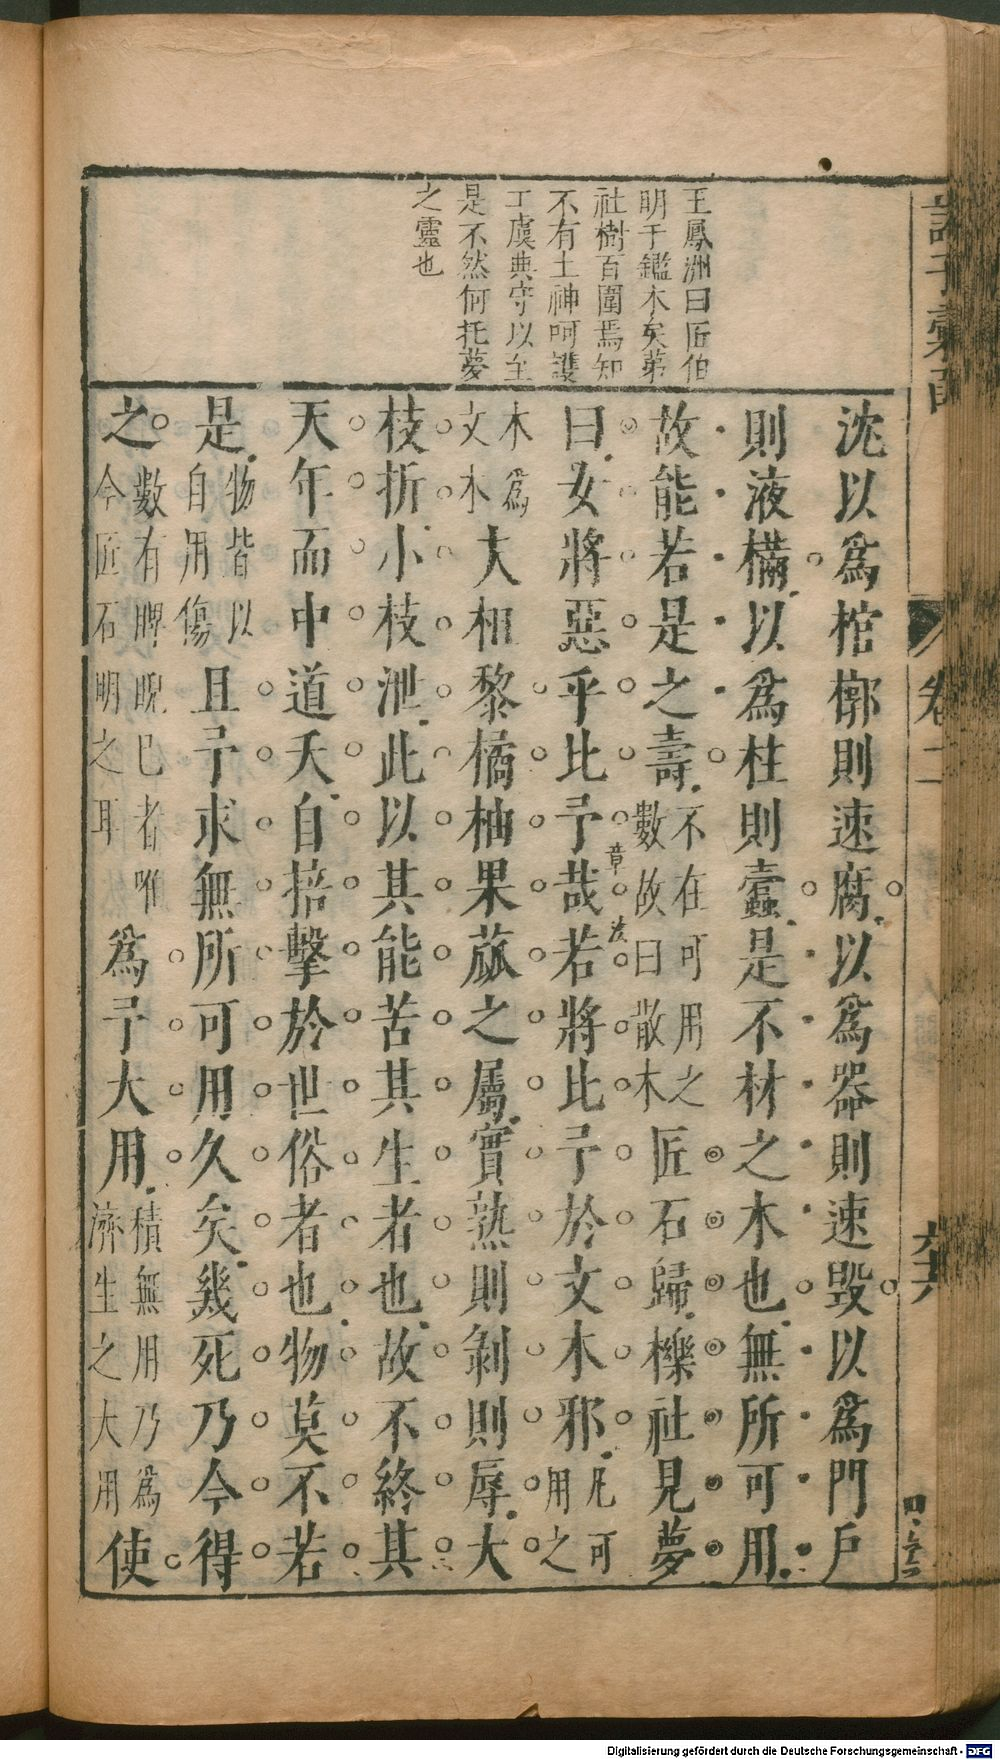 王鳳洲曰匠伯
明于鑑木矣第
社樹百圍焉知
不有土神呵護
丁虞典守以至
是不然何托夢
之靈也
沈以爲棺槨則速腐以爲器則速毀以爲門戶
則液樠以爲柱則蠹是不材之木也無所可用
故能若是之壽不在可用之數故曰散木匠石歸櫟社見夢
曰女將惡乎比予哉若將比予於文木邪凡可用之
木爲文木夫柤棃橘柚果蓏之屬實熟則剝則辱大
枝折小枝泄此以其能苦其生者也故不終其
天年而中道夭自掊擊於世俗者也物莫不若
是物皆以自用傷且予求無所可用久矣幾死乃今得
之數有睥睨已者唯今匠石明之耳爲予大用積無用乃爲濟生之大用使
章法
卷二
六
Digitalisierung gefördert durch die Deutsche Forschungsgemeinschaft - DFG